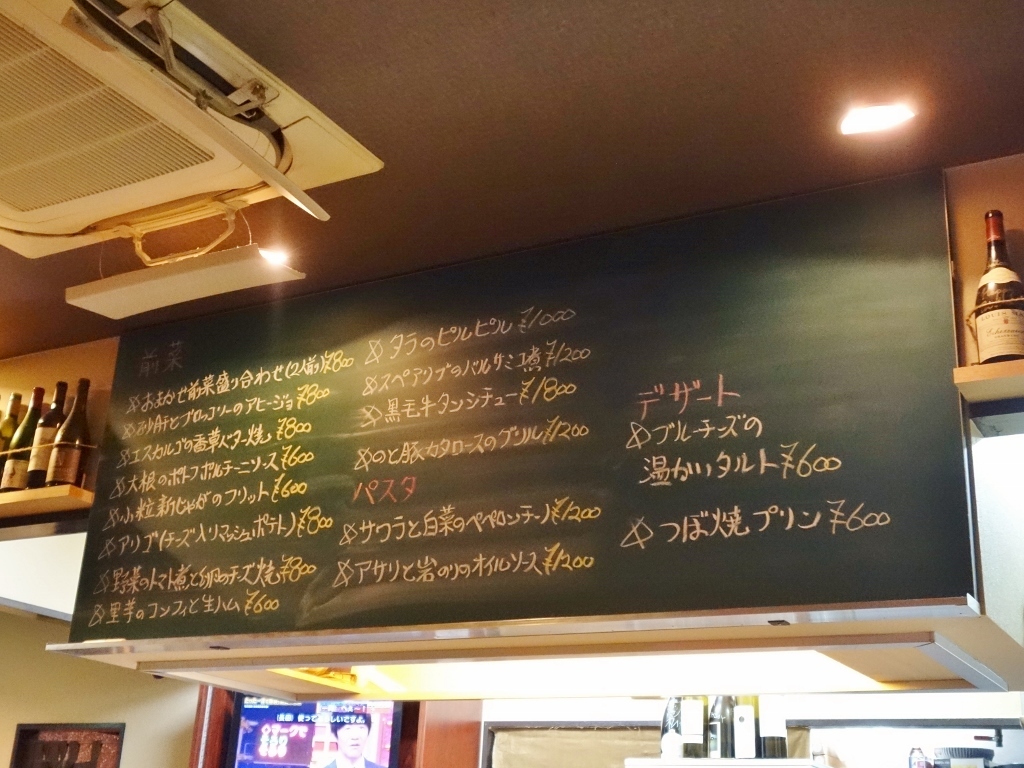 前菜
おまかせ前菜盛り合わせ(2人前)¥800
砂肝とブロッコリーのアヒージョ ¥800
エスカルゴの香草バター焼 ¥800
大根のポトフ ポルチーニソース ¥600
小粒新じゃがのフリット ¥600
アリゴ(チーズ入りマッシュポテト) ¥800
野菜のトマト煮と卵のチーズ焼 ¥800
里芋のコンフィと生ハム ¥600
タラのピルピル ¥1000
スペアリブのバルサミコ煮 ¥1200
黒毛牛タンシチュー ¥1800
のと豚カタロースのグリル ¥1200
パスタ
サワラと白菜のペペロンチーノ ¥1200
アサリと岩のりのオイルソース ¥1200
デザート
ブルーチーズの
温かいタルト ¥600
つぼ焼プリン ¥600